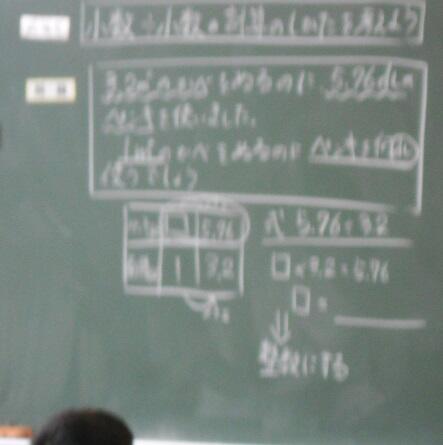 小数÷小数の計算のしかたを考えよう
3.2㎡のかべをぬるのに 5.76dLの
ペンキを使いました。
1㎡のかべをぬるのに ペンキを何dL
使うでしょう
□ 5.76
1 3.2
式 5.76÷3.2
□×3.2=5.76
□=
⇓
整数にする